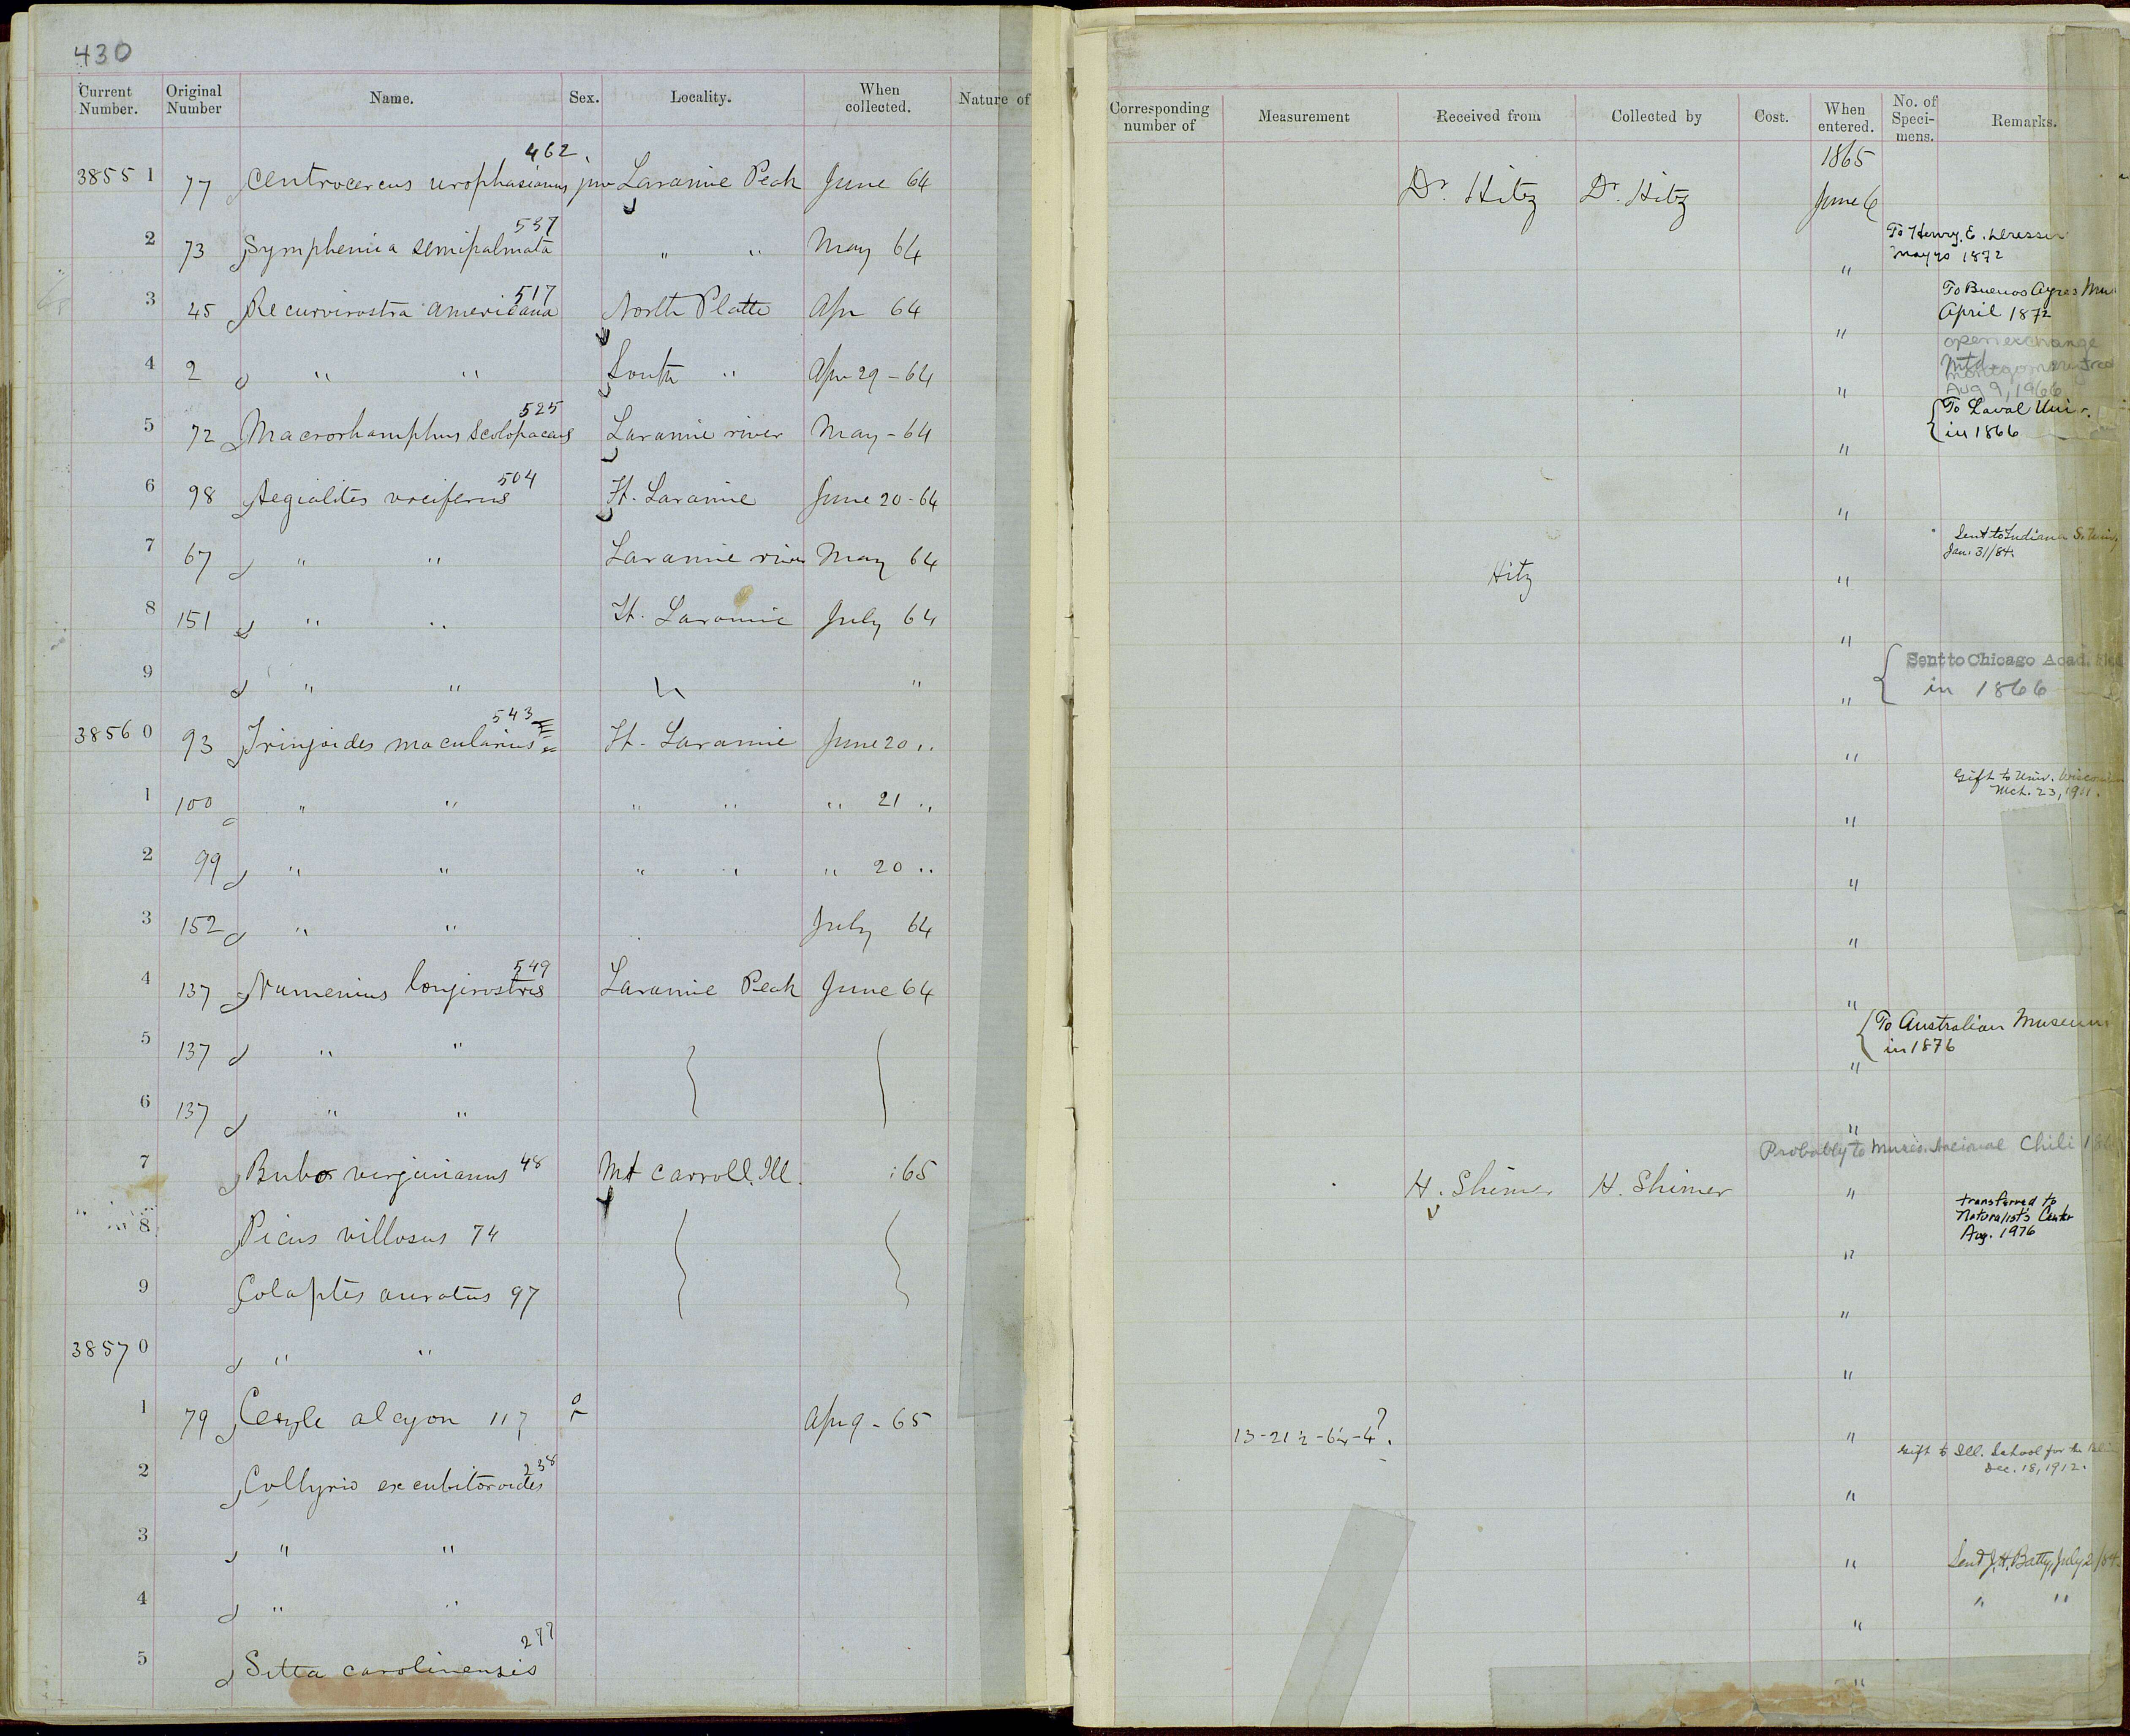 430
Current Number. Original Number Name. Sex. Locality. When collected. Nature of
462
38551 77 Centrocercus urophasianus juv Laramie Peak June 64
537
2 73 Symphemia semipalmata " " May 64
517
3 45 Recurvirostra americana North Platte Apr 64
4 2 " " South " Apr 29-64
525
5 72 Macrorhamphus scolopaceus Laramie river May-64
504
6 98 Aegialitis vociferus Ft. Laramie June 20-64
7 67 " " Laramie river May 64
8 151 " " Ft. Laramie July 64
9 " " " "
543
38560 93 Tringoides macularius Ft. Laramie June 20 "
1 100 " " " " " 21 "
2 99 " " " " " 20 "
3 152 " " July 64
549
4 137 Numenius longirostris Laramie Peak June 64
5 137 " "
6 137 " "
7 Bubo virginianus 48 Mt Carroll, Ill. 65
8 Picus villosus 74
9 Colaptes auratus 97
38570 " "
1 79 Ceryle alcyon 117 Apr 9-65
238
2 Collyrio excubitoroides
3 " "
4 " "
277
5 Sitta carolinensis
Corresponding number of Measurement Received from Collected by Cost. When entered. No. of Speci-mens. Remarks.
1865
Dr. Hitz Dr. Hitz June 6
To Henry. E. Dresser
May 1872
"
To Buenos Ayres Mus
April 1872
"
open exchange
Mtd
Aug 9, 1966
"
To Laval Uni.
in 1866
"
"
Sent to Indiana S. Univ,
Jan. 31/84.
Hitz "
"
Sent to Chicago Acad.
in 1866
"
"
Gift to Univ. Wisconsin
Mch. 23, 1911.
"
"
"
"
To Australian Museum
in 1876
"
"
Probably to Museo Nacional Chili
H. Shimer H. Shimer "
transferred to
Naturalist's Center
Aug. 1976
"
"
"
13-21½-6¼-4? "
Gift to Ill. School for the
Dec. 18, 1912.
"
" Sent J. H. Batty, July 2/84.
" "
"
"